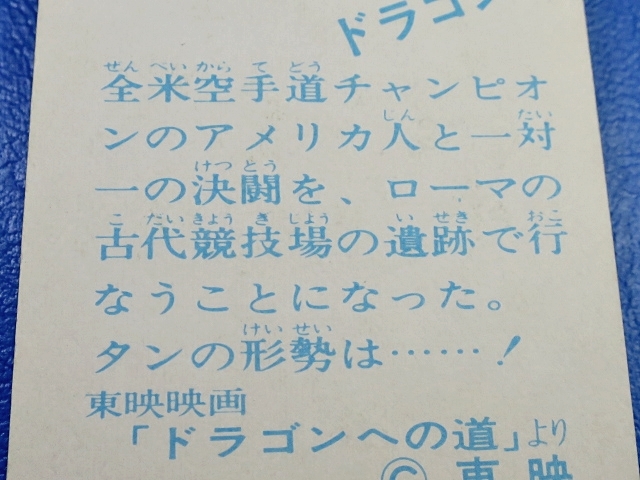 ドラゴン
全米空手道チャンピオ
ンのアメリカ人と一対
一の決闘を、ローマの
古代競技場の遺跡で行
なうことになった。
タンの形勢は……！
東映映画
「ドラゴンへの道」より
©東映